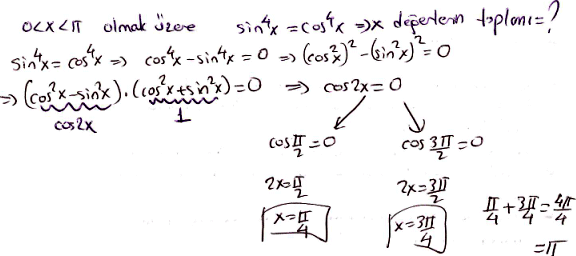 0<x<π olmak üzere sin⁴x = cos⁴x ⇒ x değerlerin toplamı=?
sin⁴x = cos⁴x ⇒ cos⁴x - sin⁴x = 0 ⇒ (cos²x)² - (sin²x)² = 0
⇒ (cos²x - sin²x).(cos²x + sin²x) = 0 ⇒ cos2x = 0
cos2x 1
cos π/2 = 0 cos 3π/2 = 0
2x = π/2 2x = 3π/2
x = π/4 x = 3π/4 π/4 + 3π/4 = 4π/4
= π